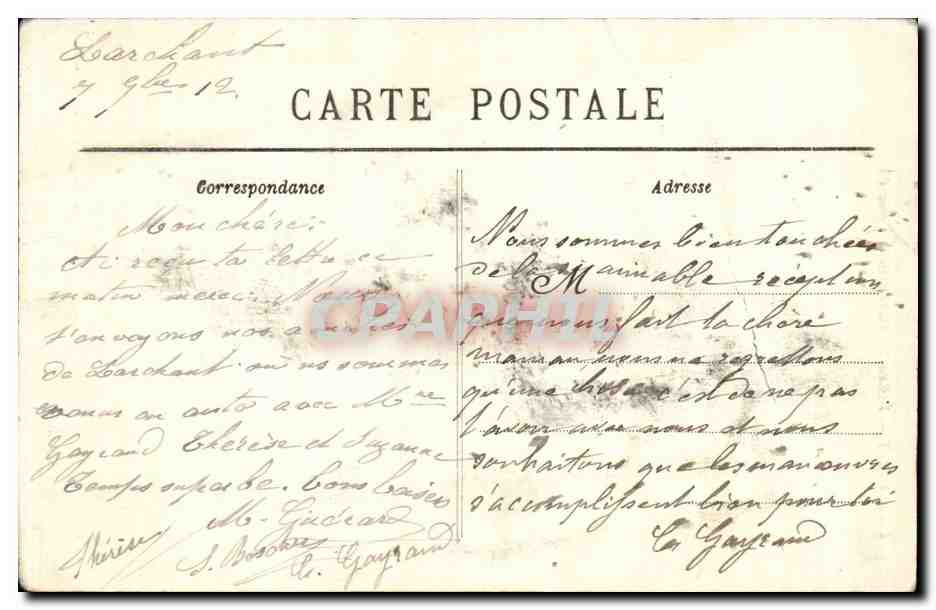 Larchant
7 9bre 12.
CARTE POSTALE
Correspondance
Mon chéri:
Ai reçu ta lettre ce
matin merci. Nous
t'envoyons nos amitiés
de Larchant où ns sommes
venus en auto avec Mme
Gayraud Thérèse et Suzanne
Temps superbe. bons baisers
M. Guérard
Thérèse
S.
G. Gayraud
Adresse
Nous sommes bien touchées
de la M aimable réception
que nous fait ta chère
maman nous ne regrettons
qu'une chose c'est de ne pas
t'avoir avec nous et nous
souhaitons que les manœuvres
s'accomplissent bien pour toi
G. Gayraud
CPAPHIL